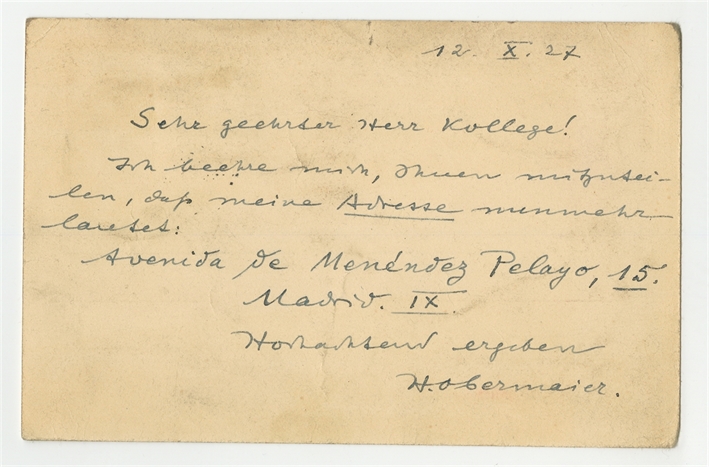 12. X. 27
Sehr geehrter Herr Kollege!
Ich beehre mich, Ihnen mitzutei-
len, daß meine Adresse nunmehr
lautet:
Avenida de Menéndez Pelayo, 15.
Madrid. IX.
Hochachtend ergeben
H. Obermaier.